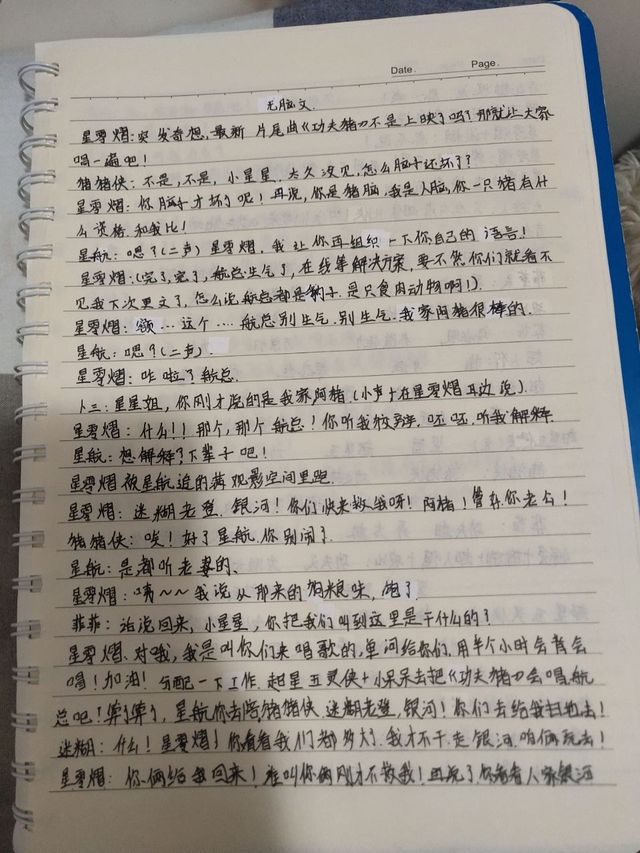 Date. Page.
无脑文.
星零熠:突发奇想,最新 片尾曲《功夫猪》不是上映了吗?那就让大家
唱一遍吧!
猪猪侠:不是,不是,小星星,太久没见,怎么脑子还坏了?
星零熠:你脑子才坏了呢!再说,你是猪脑,我是人脑,你一只猪有什
么资格和我比!
星航:嗯?(二声)星零熠,我让你再组织一下你自己的 语言!
星零熠:(完了,完了,航总生气了,在线等解决方案,要不然,你们就看不
见我下次更文了,怎么说航总都是豹子,是只食肉动物啊!).
星零熠:额…这个….航总别生气.别生气.我家阿猪很棒的.
星航:嗯?(二声).
星零熠:咋啦了航总.
卜三:星星姐,你刚才说的是我家阿猪.(小声+在星零熠耳边说).
星零熠:什么!!那个,那个航总!你听我狡辩,呸呸,听我解释.
星航:想解释?下辈子吧!
星零熠被星航追的满观影空间里跑.
星零熠:迷糊老登,银河!你们快来救我呀!阿猪!管好你老公!
猪猪侠:唉!好了星航,你别闹了.
星航:是都听老婆的、
星零熠:咦~~我说从那来的狗粮味,饱了.
菲菲:话说回来,小星星,你把我们叫到这里是干什么的?
星零熠:对哦,我是叫你们来唱歌的,单词给你们,用半个小时会背会
唱!加油!分配一下工作.超星五灵侠+小呆呆去把《功夫猪》会唱,航
总吧!算了算了,星航你去陪猪猪侠.迷糊老登,银河!你们去给我扫地去!
迷糊:什么!星零熠!你看看我们都多大了,我才不干,走银河,咱俩玩去!
星零熠:你俩给我回来!谁叫你俩刚才不救我!再说了你看看人家银河